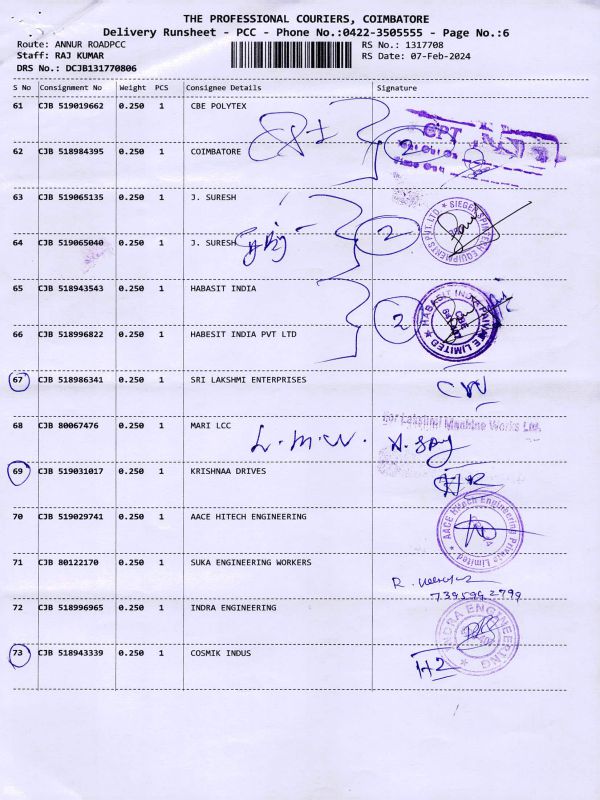 THE PROFESSIONAL COURIERS, COIMBATORE
Delivery Runsheet - PCC - Phone No.:0422-3505555 - Page No.:6
Route: ANNUR ROADPCC RS No.: 1317708
Staff: RAJ KUMAR RS Date: 07-Feb-2024
DRS No.: DCJB131770806
S No Consignment No Weight PCS Consignee Details Signature
61 CJB 519019662 0.250 1 CBE POLYTEX
CPT
62 CJB 518984395 0.250 1 COIMBATORE 2
63 CJB 519065135 0.250 1 J. SURESH
SIEGER SPINTECH EQUIPMENTS PVT. LTD
64 CJB 519065040 0.250 1 J. SURESH 2
65 CJB 518943543 0.250 1 HABASIT INDIA
HABASIT INDIA PRIVATE LIMITED
2
66 CJB 518996822 0.250 1 HABESIT INDIA PVT LTD
67 CJB 518986341 0.250 1 SRI LAKSHMI ENTERPRISES
68 CJB 80067476 0.250 1 MARI LCC For Lakshmi Machine Works Ltd.
L.M.W.
69 CJB 519031017 0.250 1 KRISHNAA DRIVES
70 CJB 519029741 0.250 1 AACE HITECH ENGINEERING
AACE Hitech Engineering Private Limited
71 CJB 80122170 0.250 1 SUKA ENGINEERING WORKERS
7395992799
72 CJB 518996965 0.250 1 INDRA ENGINEERING
INDRA ENGINEERING
73 CJB 518943339 0.250 1 COSMIK INDUS
H2